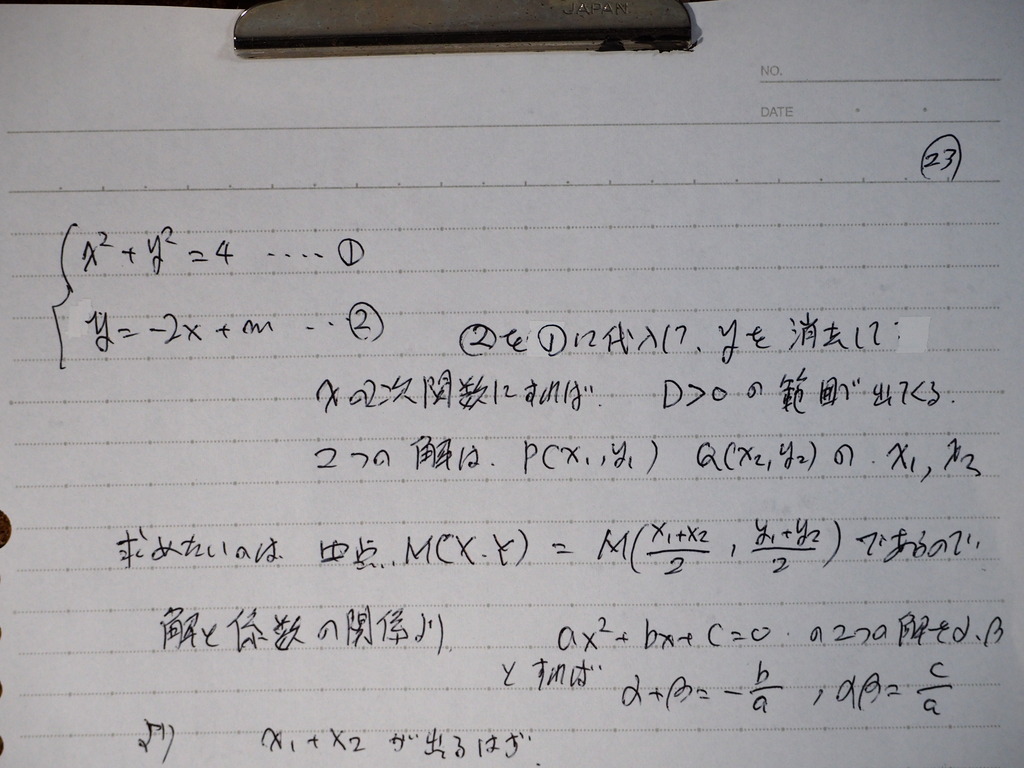 JAPAN
NO.
DATE
㉓
x²+y²=4 ‥‥ ①
y=-2x+m ‥②
②を①に代入して、yを消去して
xの2次関数にすれば. D>0の範囲で出てくる.
2つの解は. P(x₁,y₁) Q(x₂,y₂)の. x₁, x₂
求めたいのは 中点. M(X.Y) = M(x₁+x₂/2, y₁+y₂/2)であるので,
解と係数の関係より ax²+bx+c=0.の2つの解をα、β
とすれば α+β=-b/a , αβ=c/a
より x₁+x₂が出るはず.